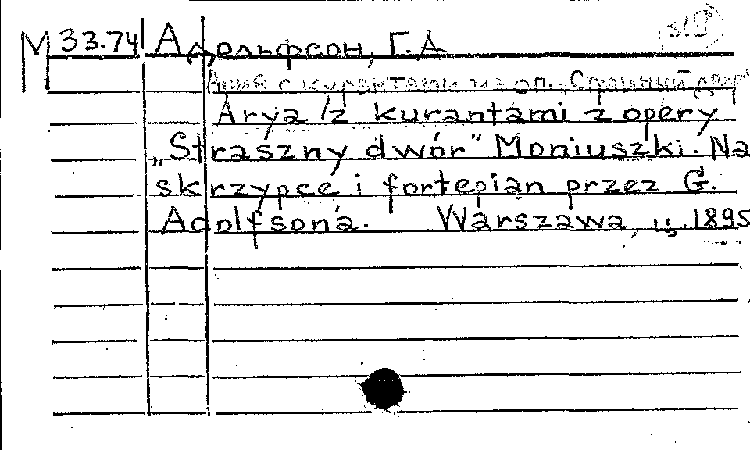 М 33.74 Адольфсон, Г.А
Ария с курантами из оп. „Страшный двор"
Arya /z kurantami z opery
„Straszny dwór" Moniuszki. Na
skrzypce i fortepian przez G.
Adolfsona. Warszawa, 1895